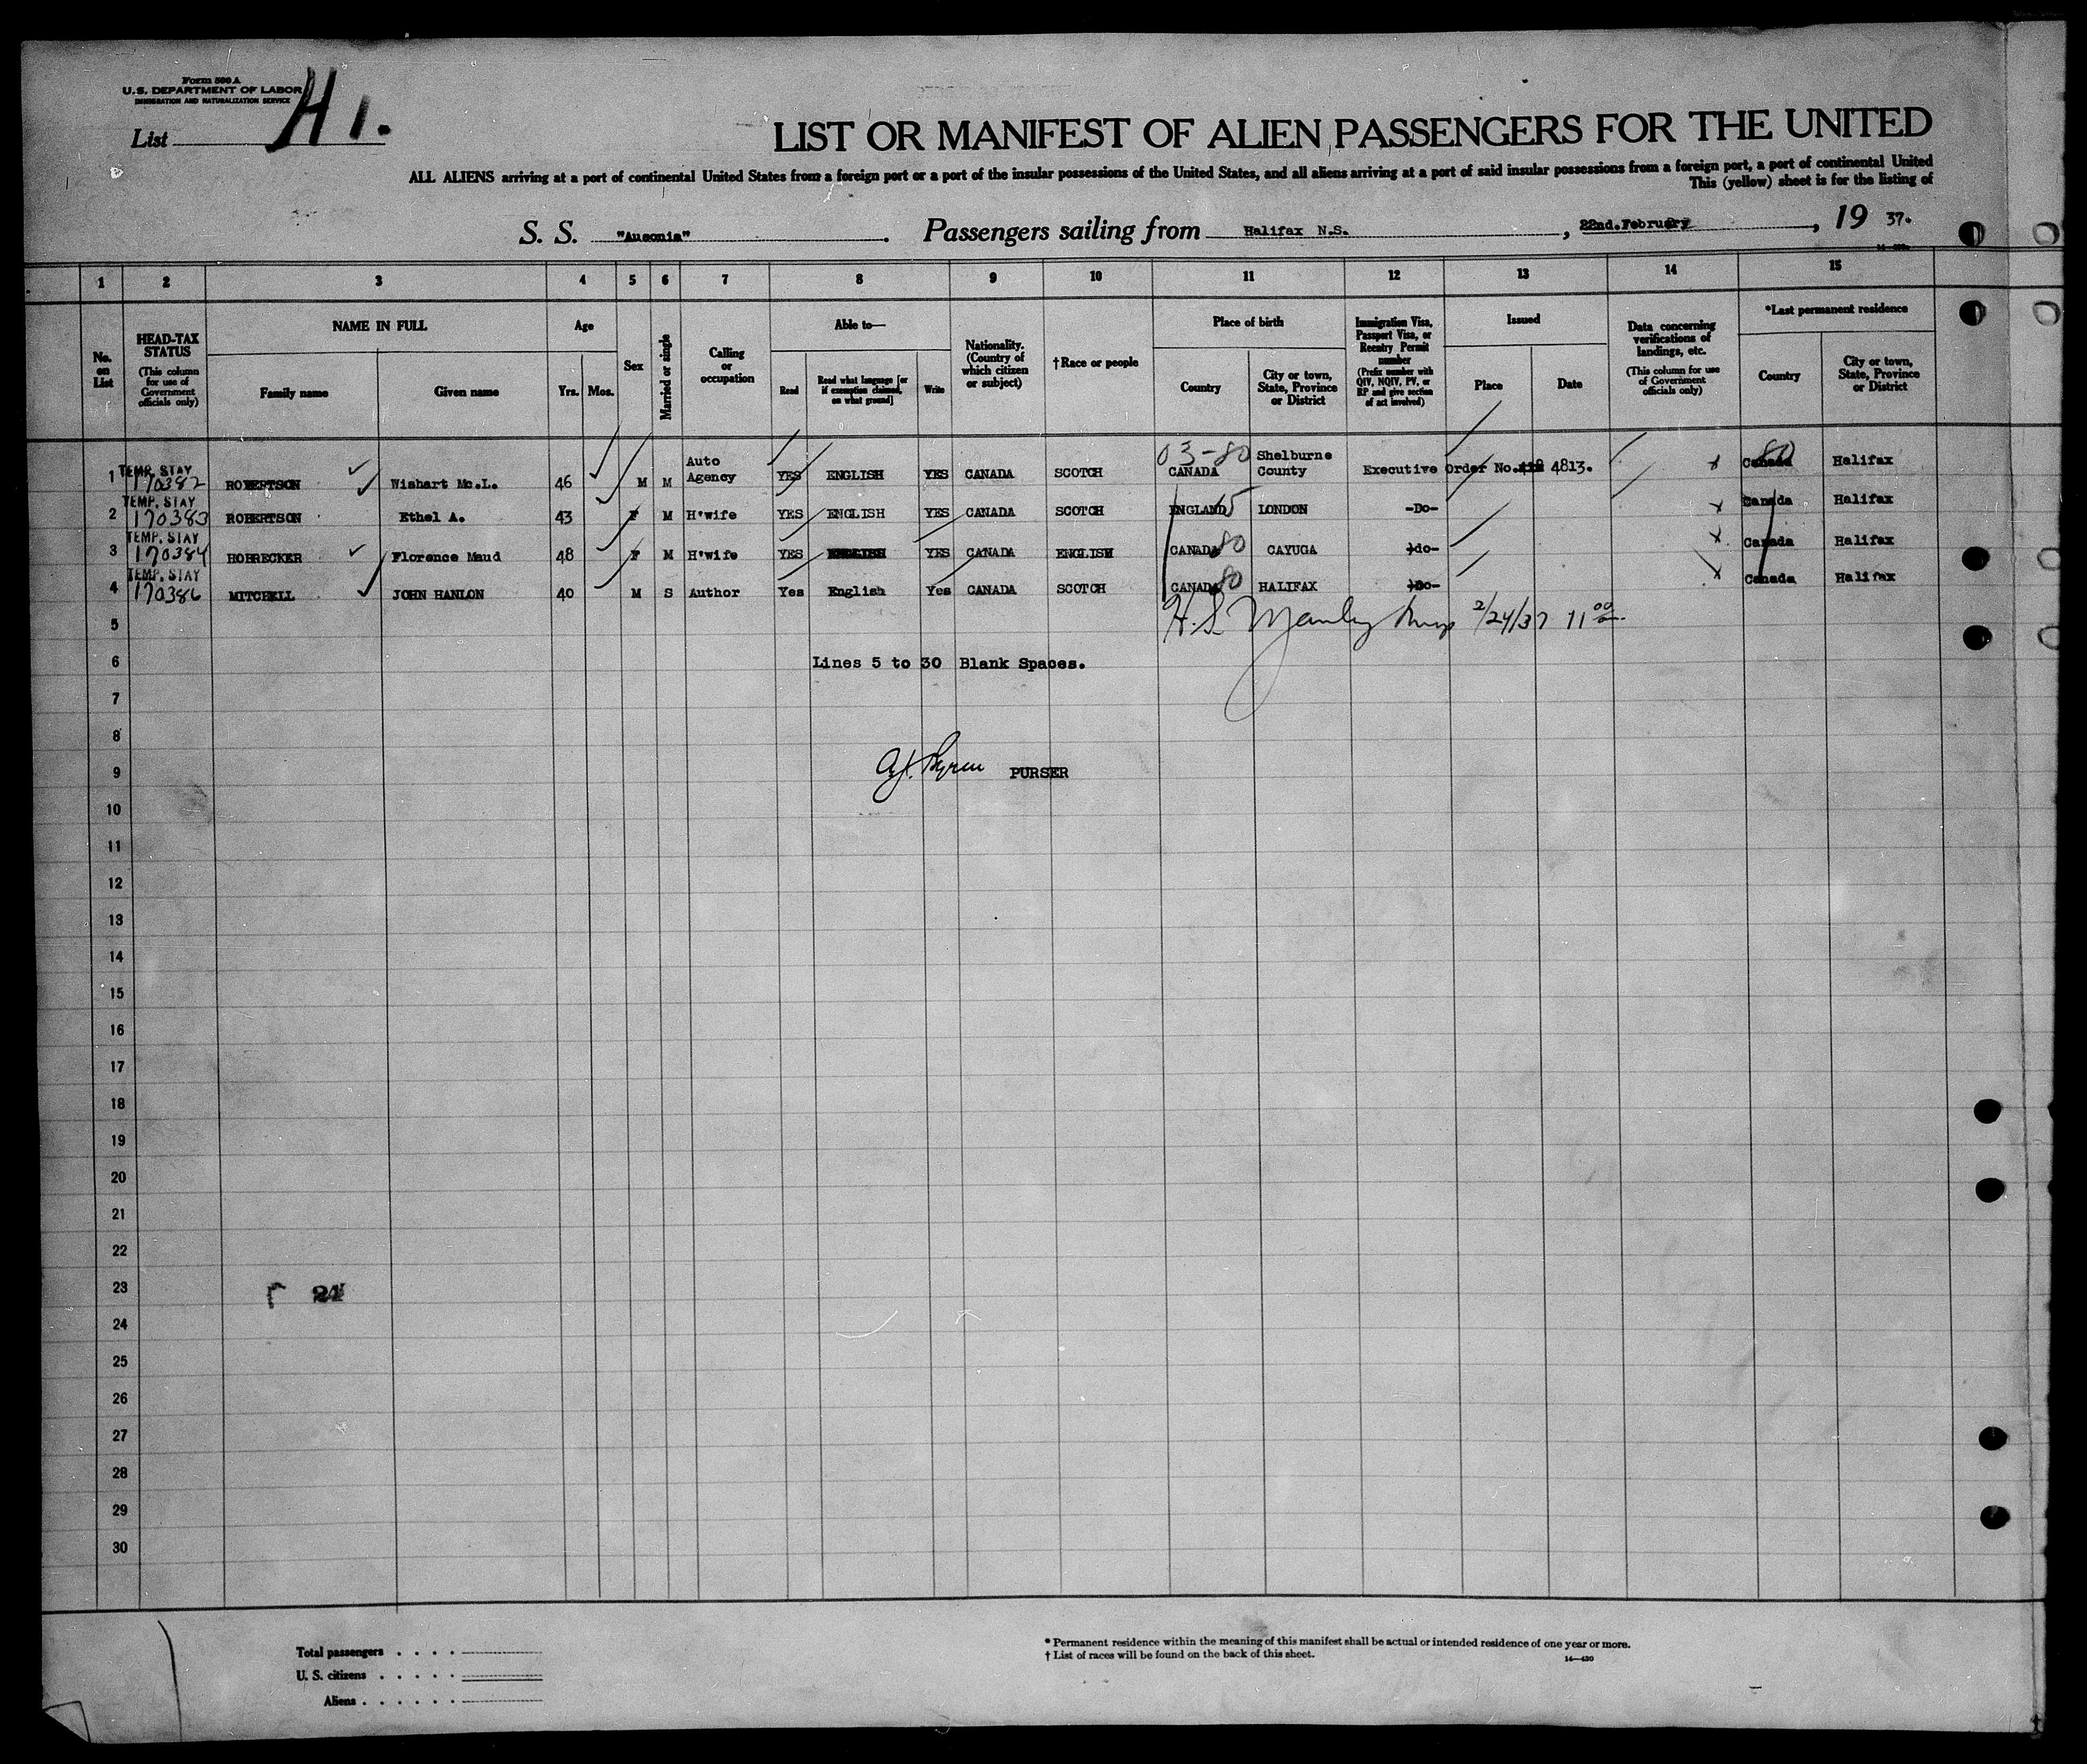 Form 500 A
U.S. DEPARTMENT OF LABOR
IMMIGRATION AND NATURALIZATION SERVICE
List H 1.
LIST OR MANIFEST OF ALIEN PASSENGERS FOR THE UNITED
ALL ALIENS arriving at a port of continental United States from a foreign port or a port of the insular possessions of the United States, and all aliens arriving at a port of said insular possessions from a foreign port, a port of continental United
This (yellow) sheet is for the listing of
S. S. "Ausonia". Passengers sailing from Halifax N.S., 22nd.February, 19 37.
1 2 3 4 5 6 7 8 9 10 11 12 13 14 15
No. on List
HEAD-TAX STATUS (This column for use of Government officials only)
NAME IN FULL
Family name Given name
Age
Yrs. Mos.
Sex
Married or single
Calling or occupation
Able to—
Read Read what language [or if exemption claimed, on what ground] Write
Nationality. (Country of which citizen or subject)
†Race or people
Place of birth
Country City or town, State, Province or District
Immigration Visa, Passport Visa, or Reentry Permit number (Prefix number with QIV, NQIV, PV, or RP and give section of act involved)
Issued
Place Date
Data concerning verifications of landings, etc. (This column for use of Government officials only)
*Last permanent residence
Country City or town, State, Province or District
1 TEMP. STAY 170382 ROBERTSON Wishart Mc.L. 46 M M Auto Agency YES ENGLISH YES CANADA SCOTCH 03-80 CANADA Shelburne County Executive Order No. 4813. x Canada 80 Halifax
2 TEMP. STAY 170383 ROBERTSON Ethel A. 43 F M H'wife YES ENGLISH YES CANADA SCOTCH ENGLAND 15 LONDON -Do- x Canada Halifax
3 TEMP. STAY 170384 HOBRECKER Florence Maud 48 F M H'wife YES ENGLISH YES CANADA ENGLISH CANADA 80 CAYUGA -do- x Canada Halifax
4 TEMP. STAY 170386 MITCHELL JOHN HANLON 40 M S Author Yes English Yes CANADA SCOTCH CANADA 80 HALIFAX -Do- x Canada Halifax
5 H.S. Manley Insp 2/24/37 11 00
6 Lines 5 to 30 Blank Spaces.
7
8
9 PURSER
10
11
12
13
14
15
16
17
18
19
20
21
22
23 24
24
25
26
27
28
29
30
Total passengers . . . .
U. S. citizens . . . . .
Aliens . . . . . .
* Permanent residence within the meaning of this manifest shall be actual or intended residence of one year or more.
† List of races will be found on the back of this sheet. 14—430